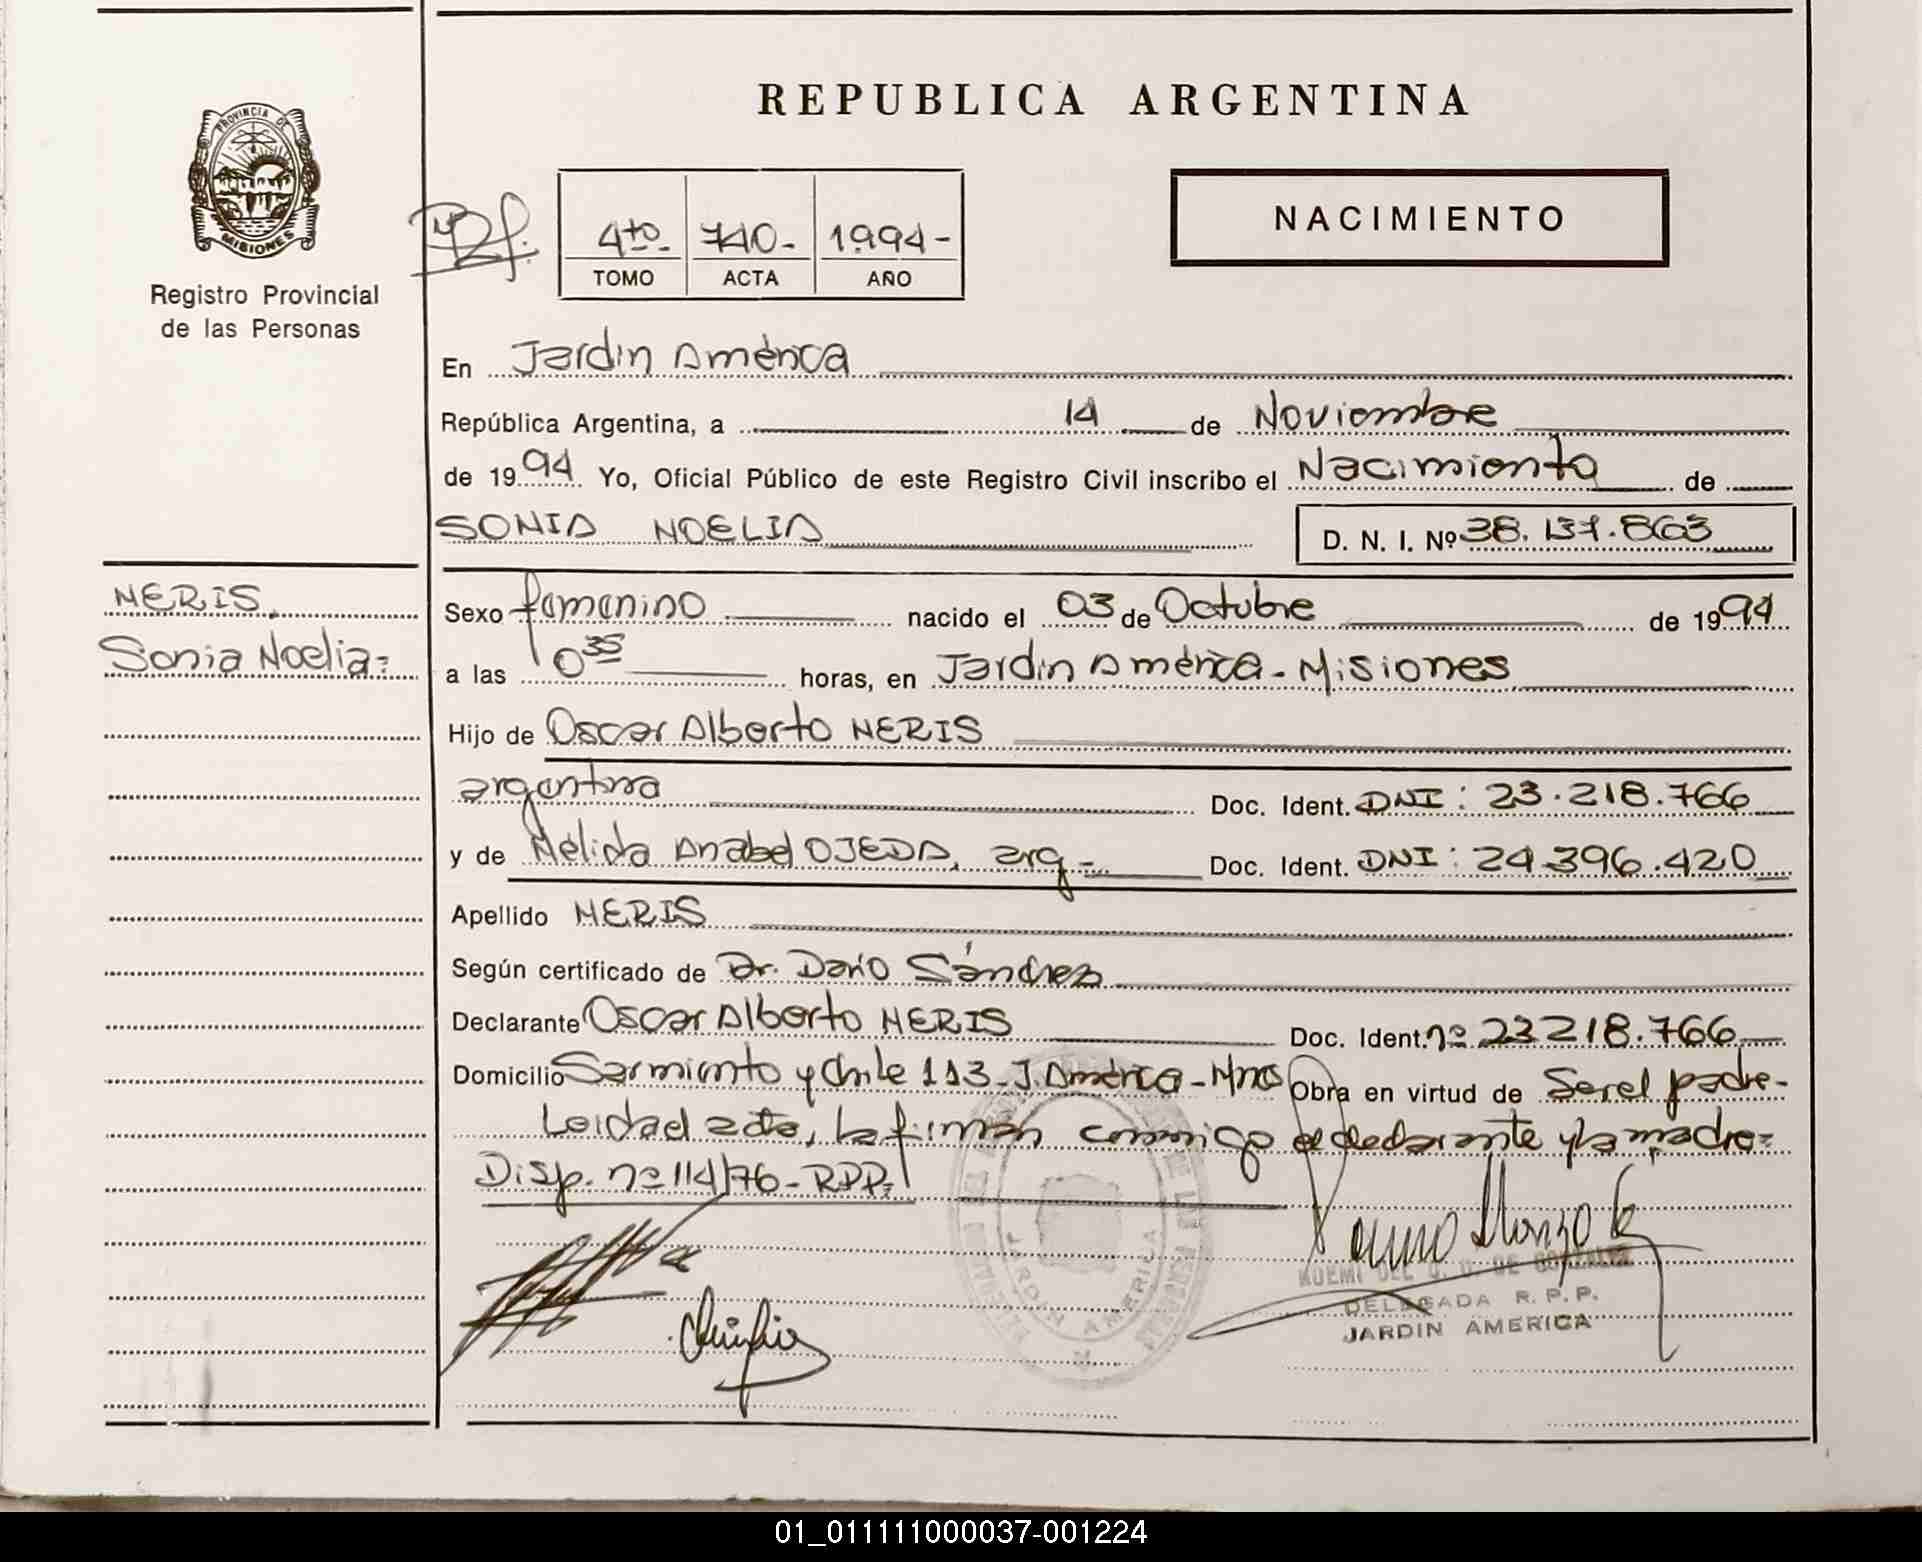 REPUBLICA ARGENTINA
PROVINCIA DE
MISIONES
Registro Provincial
de las Personas
4to.- 740.- 1.994-
TOMO ACTA AÑO
NACIMIENTO
En Jardin América
República Argentina, a 14 de Noviembre
de 1994 Yo, Oficial Público de este Registro Civil inscribo el Nacimiento de
SONIA NOELIA D. N. I. Nº 38.137.863
NERIS,
Sonia Noelia=
Sexo femenino nacido el 03 de Octubre de 1994
a las 0 35 horas, en Jardin América - Misiones
Hijo de Oscar Alberto NERIS
argentina Doc. Ident. DNI: 23.218.766
y de Nélida Anabel OJEDA, arg.- Doc. Ident. DNI: 24.396.420
Apellido NERIS
Según certificado de Dr. Darío Sánchez
Declarante Oscar Alberto NERIS Doc. Ident. nº 23218.766
Domicilio Sarmiento y Chile 113- J. América - Mnes Obra en virtud de Ser el padre-
Leidad acta, la firman conmigo el declarante y la madre=
Disp. nº 114/76- RPP.
NOEMI DEL DE GONZALEZ
DELEGADA R. P. P.
JARDIN AMERICA
JARDIN AMERICA
01_011111000037-001224